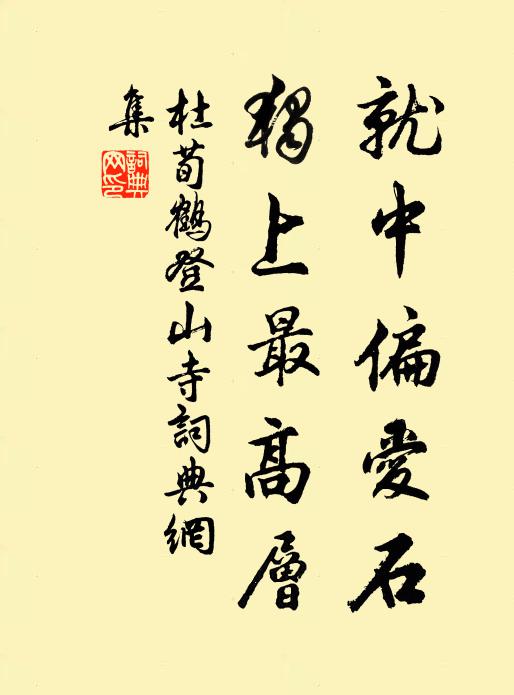 就中偏愛石
獨上最高層
杜荀鶴登山寺詞典網
集
詞典網印